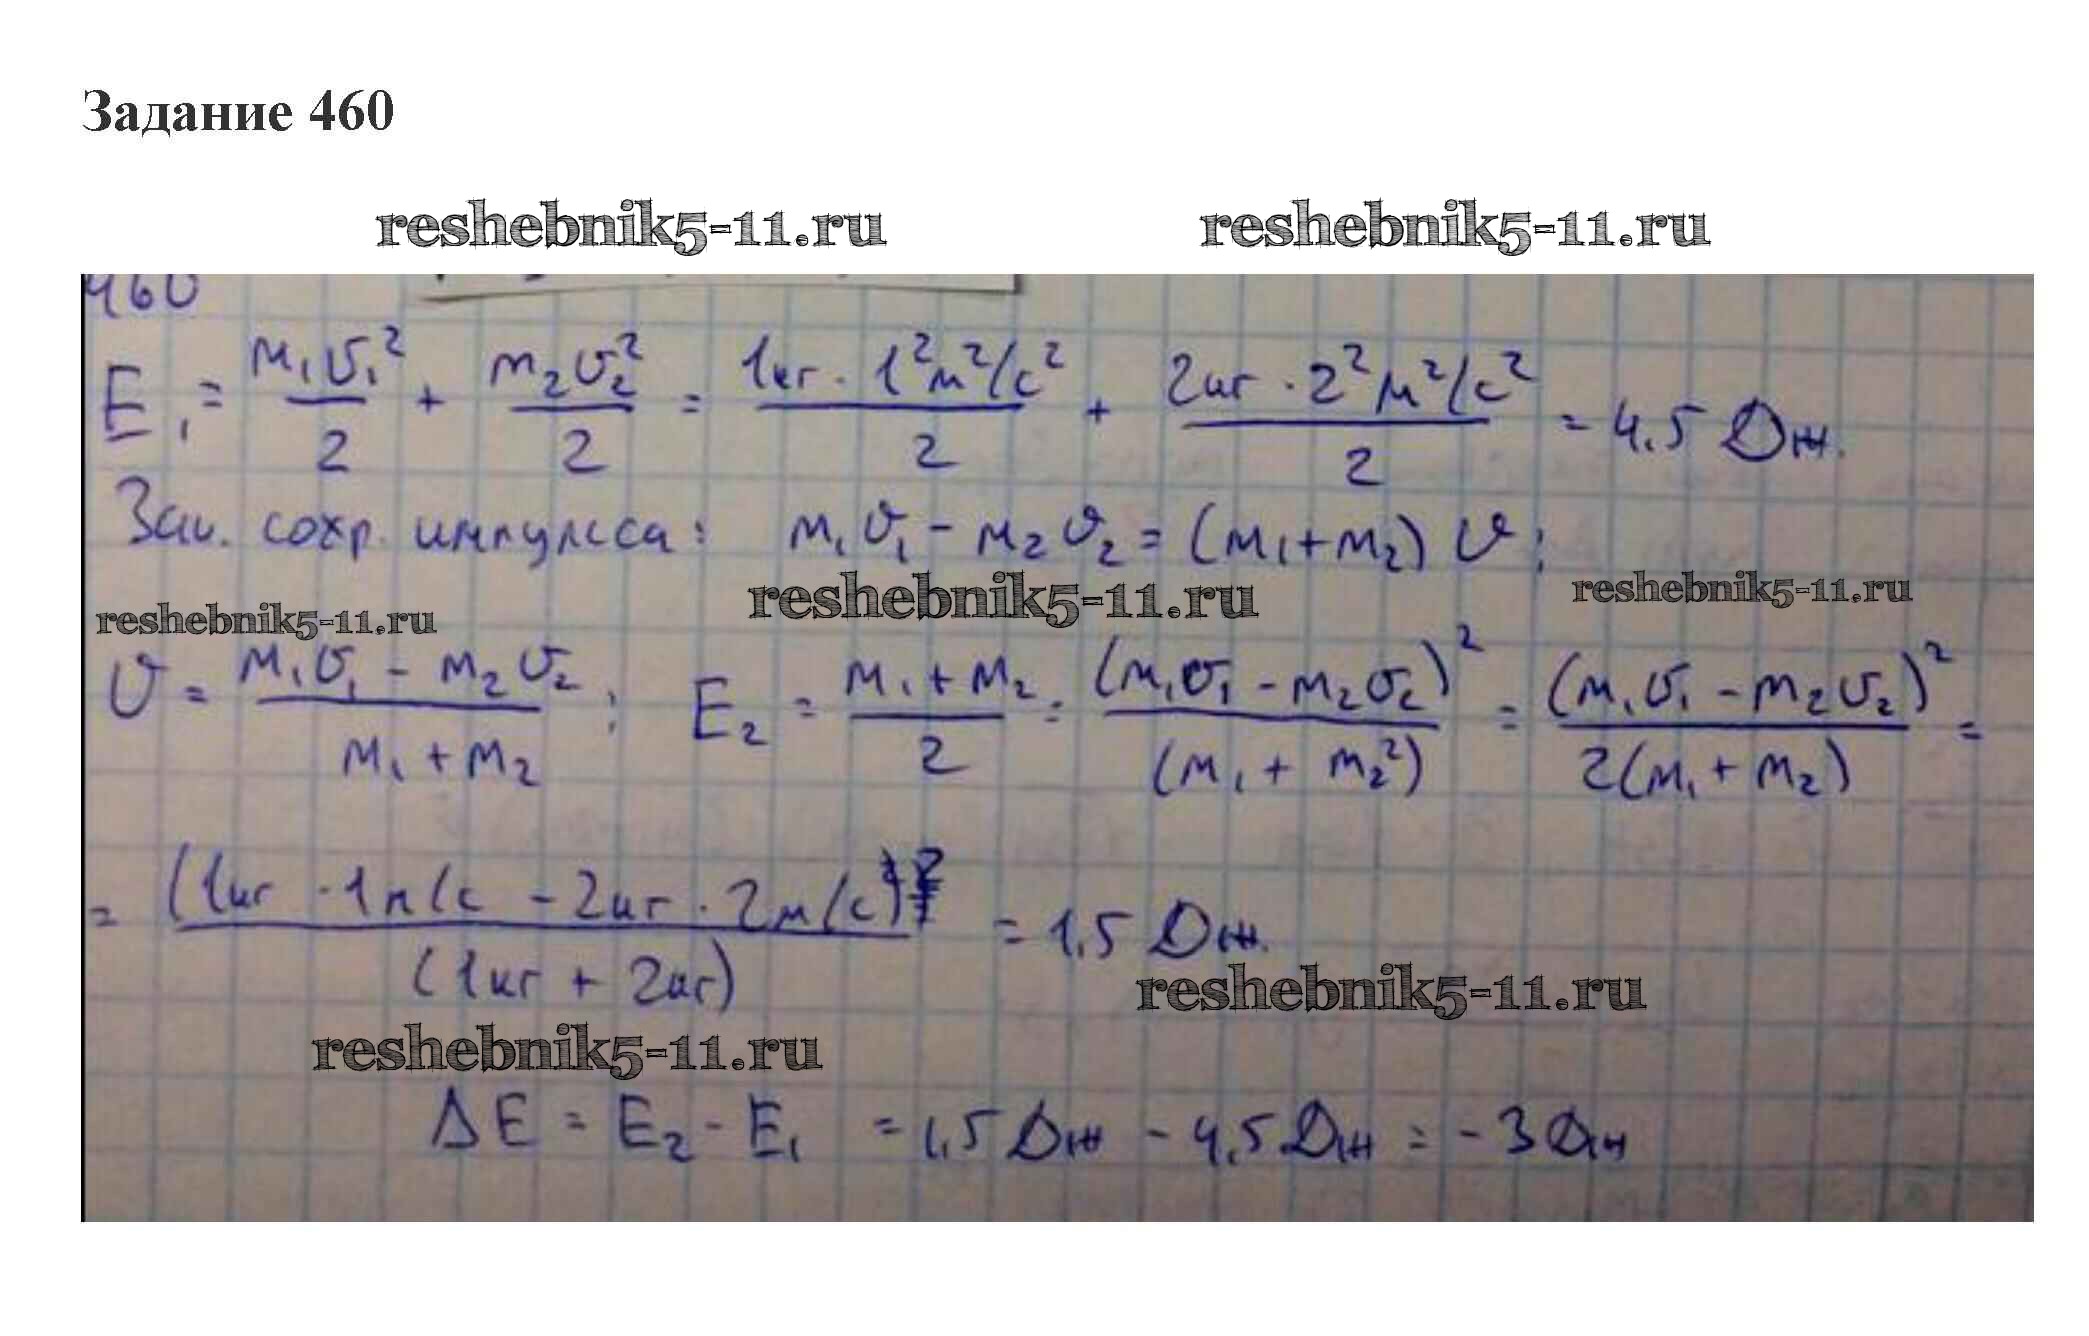 Задание 460
reshebnik5-11.ru reshebnik5-11.ru
460
E₁ = m₁υ₁²/2 + m₂υ₂²/2 = 1кг · 1²м²/с²/2 + 2кг · 2²м²/с²/2 = 4,5 Дж.
Зак. сохр. импульса: m₁υ₁ - m₂υ₂ = (m₁+m₂) υ;
reshebnik5-11.ru reshebnik5-11.ru reshebnik5-11.ru
υ = m₁υ₁ - m₂υ₂/m₁ + m₂ ; E₂ = m₁ + m₂/2 = (m₁υ₁ - m₂υ₂)²/(m₁ + m₂²) = (m₁υ₁ - m₂υ₂)²/2(m₁ + m₂) =
= (1кг · 1м/с - 2кг · 2м/с)²/(1кг + 2кг) = 1,5 Дж.
reshebnik5-11.ru
reshebnik5-11.ru
ΔE = E₂ - E₁ = 1,5 Дж - 4,5 Дж = - 3 Дж